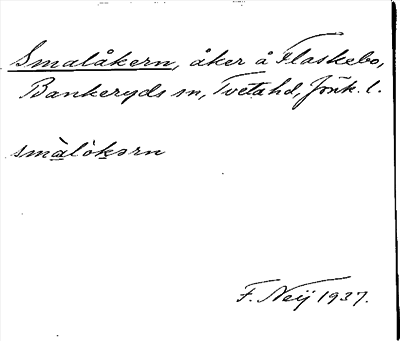 Smalåkern, åker å Flaskebo,
Bankeryds sn, Tvetahd, Jönk. l.
smàlòkərn
F. Neij 1937.